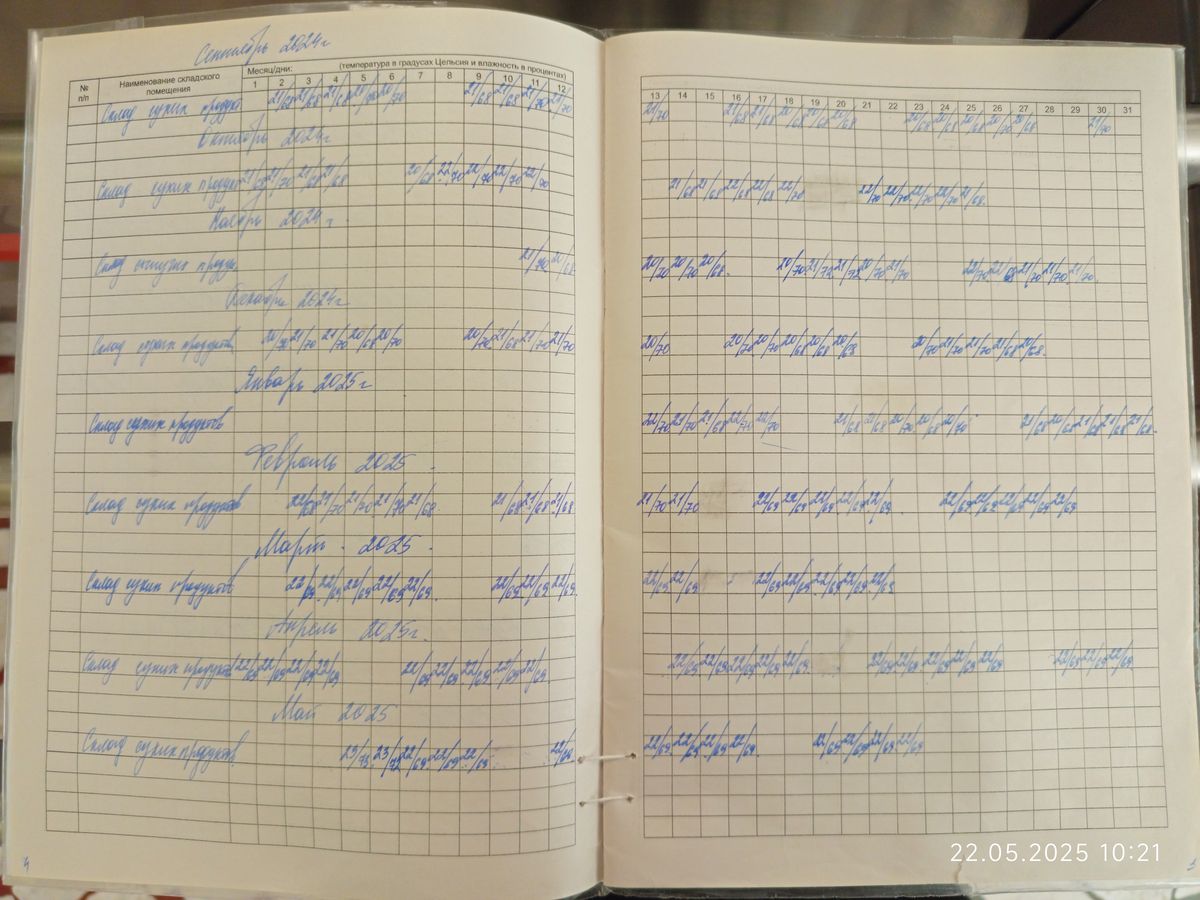 Сентябрь 2024г
№ п/п
Наименование складского помещения
Месяц/дни: (температура в градусах Цельсия и влажность в процентах)
1 2 3 4 5 6 7 8 9 10 11 12
13 14 15 16 17 18 19 20 21 22 23 24 25 26 27 28 29 30 31
Склад сухих продукт 21/68 21/68 21/68 20/70 20/70 21/68 21/68 21/70 21/70
21/70 21/68 21/68 20/68 20/68 20/68 20/68 20/68 20/68 20/70 20/68 21/70
Октябрь 2024г
Склад сухих продукт 21/68 21/70 21/68 21/68 20/68 22/70 22/70 22/70 22/70
21/68 21/68 22/68 22/68 22/70 22/70 22/70 22/70 22/70 21/68
Ноябрь 2024г
Склад продук 21/70 20/68
20/70 20/70 20/68 20/70 21/72 21/72 20/70 21/70 22/72 22/68 21/70 21/70 21/70
Декабрь 2024г
Склад сухих продуктов 20/70 21/70 21/70 20/68 20/70 20/70 21/68 21/70 21/70
20/70 20/70 20/70 20/68 20/68 20/68 20/70 21/70 21/70 21/68 20/68
Январь 2025г
Склад сухих продуктов
22/70 21/70 21/68 22/70 22/70 21/68 21/68 20/70 20/68 20/70 21/68 20/68 21/68 21/68 21/68
Февраль 2025
Склад сухих продуктов 22/68 21/70 21/70 21/70 21/68 21/68 21/68 21/68
21/70 21/70 22/69 22/69 22/69 22/69 22/69 22/69 22/69 22/69 22/69 22/69
Март 2025
Склад сухих продуктов 22/69 22/69 22/69 22/69 22/69 22/69 22/69 22/69
22/69 22/69 22/69 22/69 22/69 22/69 22/69
Апрель 2025г.
Склад сухих продуктов 22/69 22/69 22/69 22/69 22/69 22/69 22/69 22/69 22/69
22/69 22/69 22/69 22/69 22/69 22/69 22/69 22/69 22/69 22/69 22/69 22/69 22/69
Май 2025
Склад сухих продуктов 23/73 23/72 22/69 22/69 22/69 22/69
22/69 22/69 22/69 22/69 22/69 22/69 22/69 22/69
4
22.05.2025 10:21